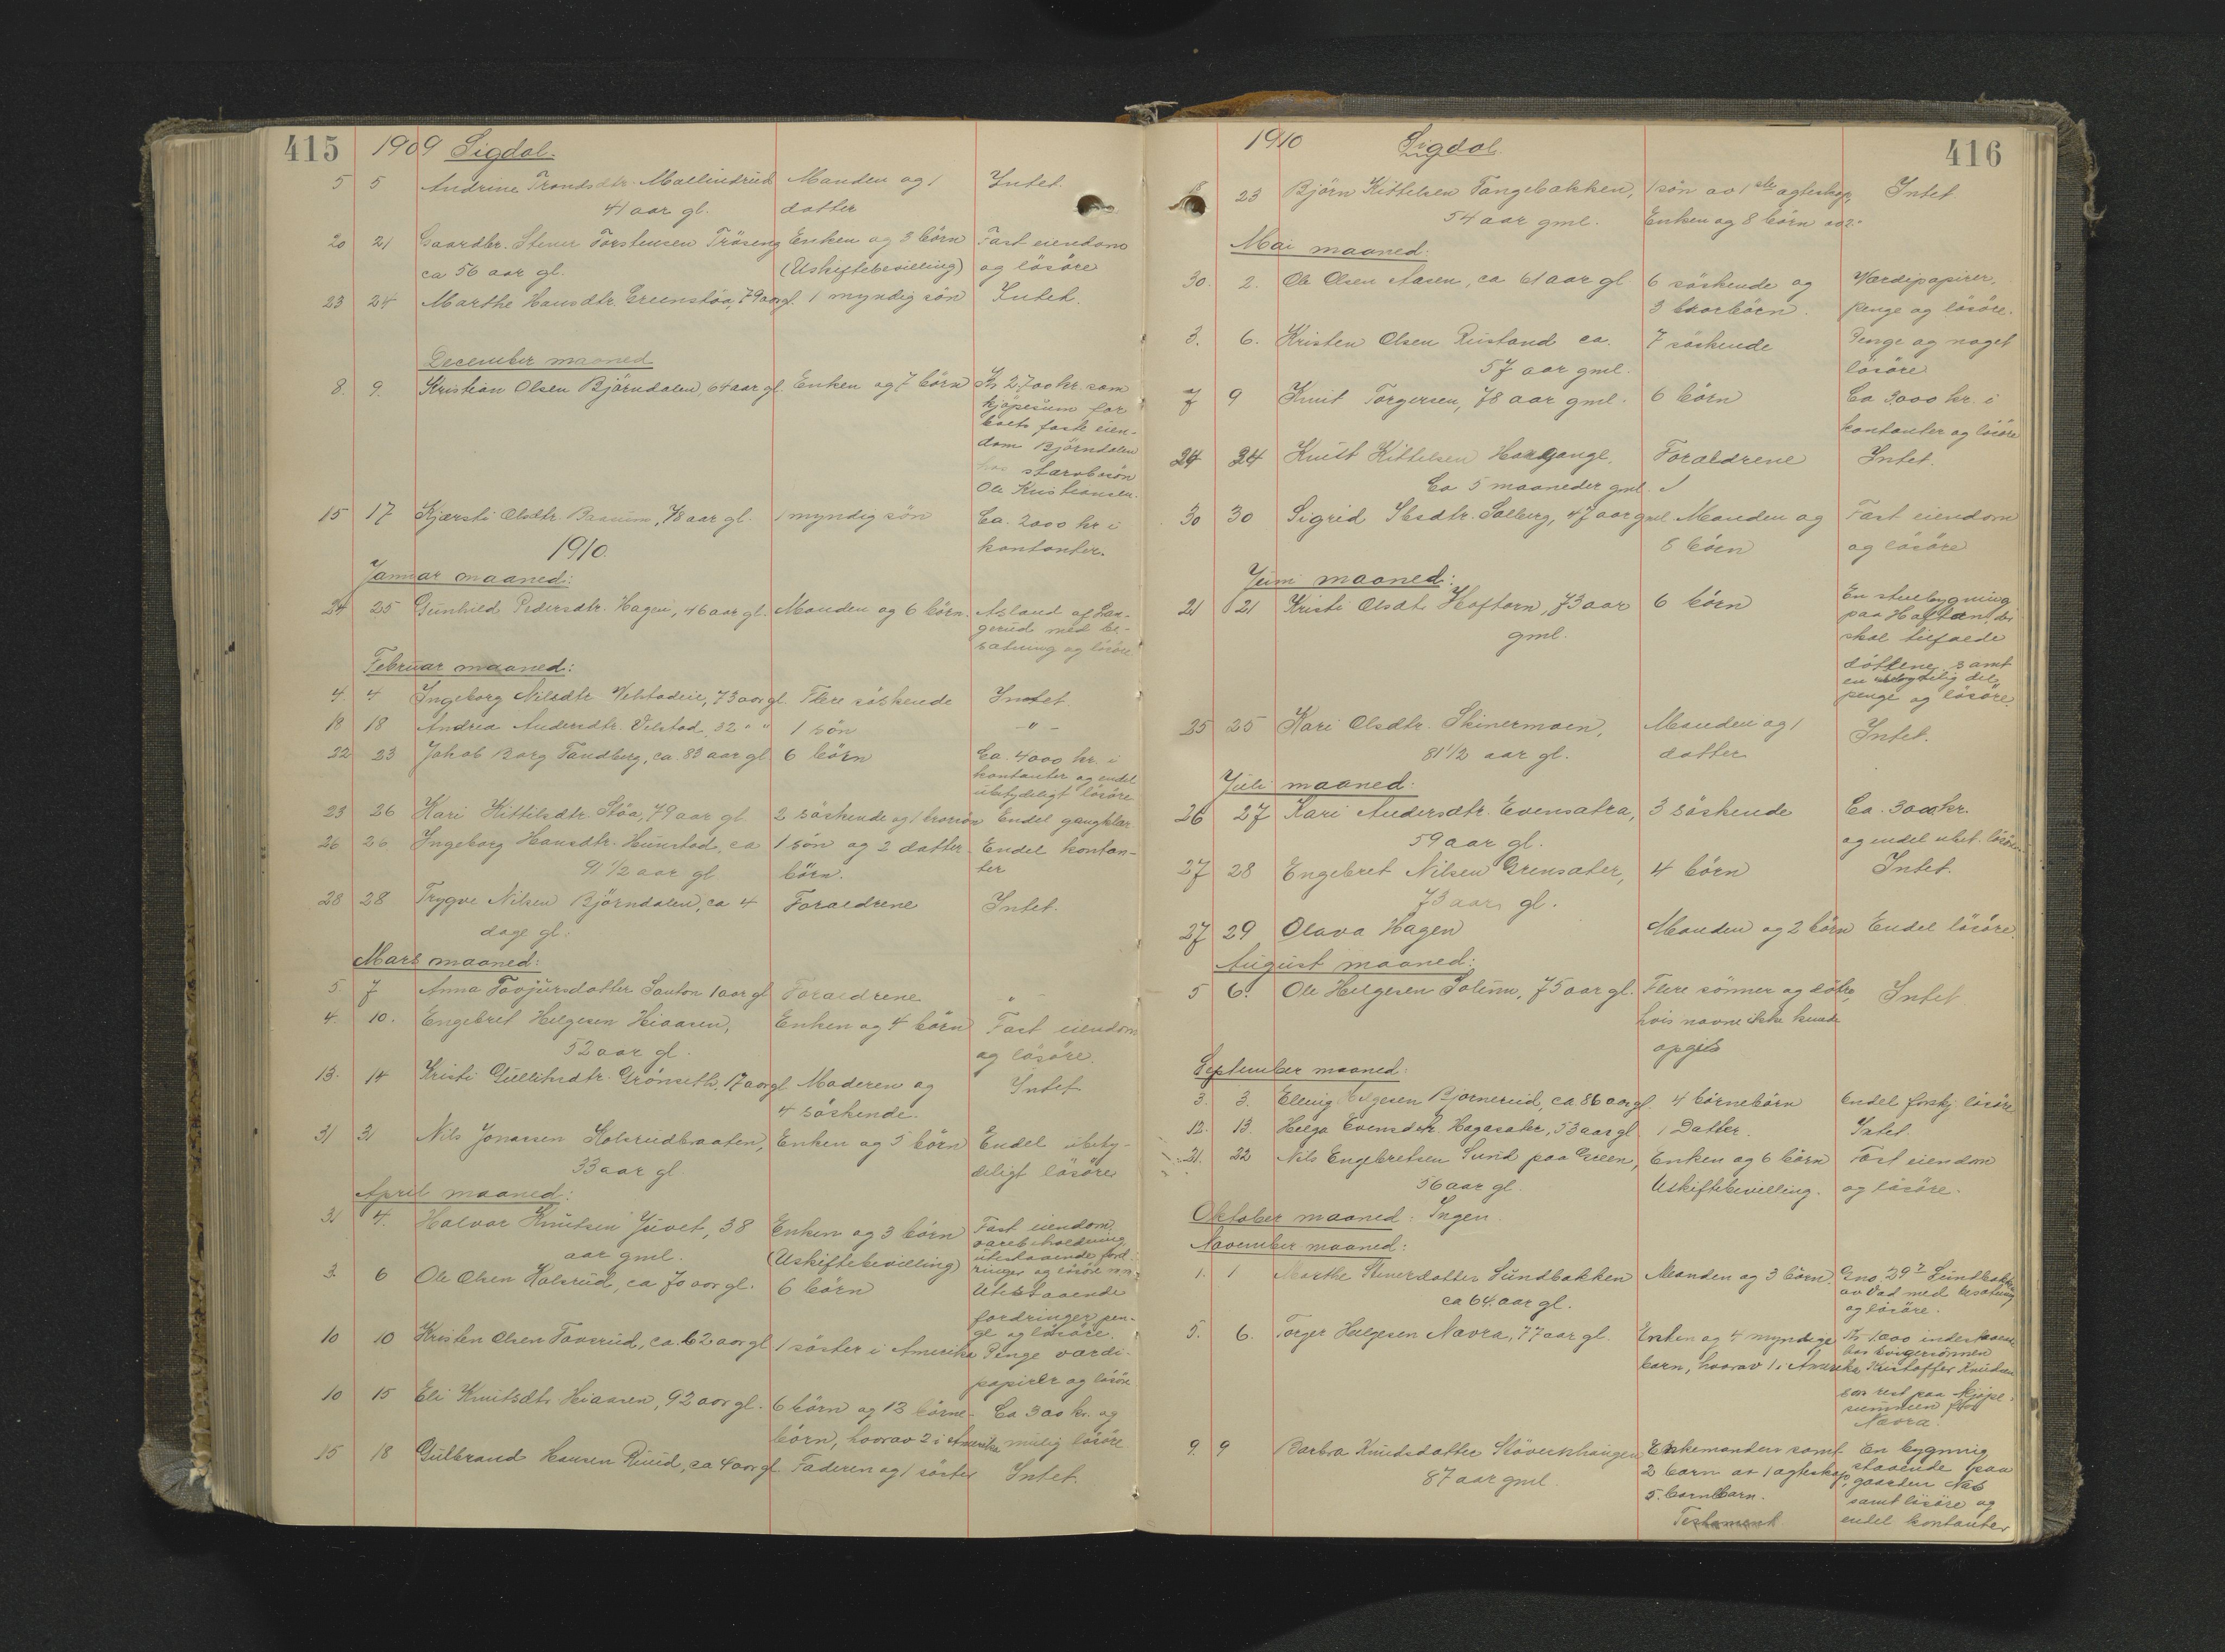 415 1909 Sigdal.
5 5 Andrine Trondsdtr. Mællindrud Manden og 1 Intet.
41 aar gl. datter
20 21 Gaardbr. Stener Torstensen Tråseng Enken og 3 børn Fast eiendom
ca 56 aar gl. (Uskiftebevilling) og løsøre
23 24 Marthe Hansdtr. Grenstøa, 79 aar gl. 1 myndig søn Intet.
December maaned
8. 9. Kristian Olsen Bjørndalen, 64 aar gl. Enken og 7 børn Kr 2700 kr. som
kjøpesum for
boets faste eien-
dom Bjørndalen
hos stervbosøn
Ole Kristiansen.
15 17 Kjersti Olsdtr. Braaum, 78 aar gl. 1 myndig søn Ca. 2000 kr i
kontanter.
1910.
Januar maaned:
24 25 Gunhild Pedersdtr. Hagen, 46 aar gl. Manden og 6 børn. Asland af
gerud med be-
sætning og løsøre
Februar maaned:
4. 4 Ingeborg Nilsdtr. 73 aar gl. Flere søskende Intet
18 18 Andrea Andersdtr. Velstad, 32 " " 1 søn - " -
22 23 Jakob Borg Tandberg, ca. 83 aar gl 6 børn Ca. 4000 kr. i
kontanter og endel
ubetydeligt løsøre
23 26 Kari Kittilsdtr. Støa, 79 aar gl 2 søskende og 1 brorsøn Endel gangklær
26 26 Ingeborg Hansdtr. Hunstad, ca 1 søn og 2 datter- Endel kontan-
91 1/2 aar gl børn. ter
28 28 Trygve Nilsen Bjørndalen, ca 4 Forældrene Intet.
dage gl.
Mars maaned:
5 7 Anna Tovjursdatter Santon 1 aar gl Forældrene "
4. 10. Engebret Helgesen Hiaasen, Enken og 4 børn Fast eiendom
52 aar gl. og løsøre.
13. 14 Kristi Gulliksdtr. Grønseth, 17 aar gl Moderen og Intet
4 søskende.
31 31 Nils Jonassen Kolsrudbraaten, Enken og 5 børn Endel ubety-
33 aar gl. deligt løsøre
April maaned:
31 4. Halvor Knutsen Juvet, 38 Enken og 3 børn Fast eiendom,
aar gml. (Uskiftebevilling) varebeholdning,
utestaaende ford-
ringer og løsøre m.m.
3 6 Ole Olsen Kolsrud, ca 70 aar gl. 6 børn Utestaaende
fordringer pen-
ge og løsøre.
10 10 Kristen Olsen Tovsrud, ca. 62 aar gl 1 søster i Amerika Penge værdi-
papirer og løsøre
10 15 Eli Knutsdtr. Hiaasen, 92 aar gl. 6 børn og 13 børne- Ca 300 kr. og
børn, hvorav 2 i Amerika mulig løsøre
15 18 Gulbrand Hansen Ruud, ca 4 aar gl Faderen og 1 søster Intet.
1910 Sigdal. 416
18 23 Bjørn Kittelsen Tangebakken, 1 søn av 1ste ægteskap, Intet.
54 aar gml. Enken og 8 børn av 2.
Mai maaned:
30. 2. Ole Olsen Aasen, ca 61 aar gl 6 søskende og Værdipapirer,
3 brorbørn. penge og løsøre.
3. 6. Kristen Olsen Rustand ca. 7 søskende Penge og noget
57 aar gml. løsøre
7 9 Knut Torgersen, 78 aar gml. 6 børn Ca 3000 kr. i
kontanter og løsøre
24 24 Knut Kittelsen Haugange, Forældrene Intet.
Ca 5 maaneder gml.
30 30 Sigrid Ibsdtr. Solberg, 47 aar gml Manden og Fast eiendom
8 børn og løsøre
Juni maaned:
21 21 Kristi Olsdt. Haftorn, 73 aar 6 børn En stuebygning
gml. paa Haftorn, der
skal tilfalde
døttrene, samt
en ubetydelig del
penge og løsøre.
25 25 Kari Olsdtr. Skinermoen, Manden og 1 Intet.
81 1/2 aar gl. datter
Juli maaned:
26 27 Kari Andersdtr. Evensætra, 3 søskende Ca. 3000 kr.
59 aar gl. og endel ubet. løsøre
27 28 Engebret Nilsen Grensæter, 4 børn Intet.
73 aar gl.
27 29 Olava Hagen Manden og 2 børn Endel løsøre.
August maaned:
5 6. Ole Helgesen Solum, 75 aar gl. Flere sønner og døtre, Intet
hvis navne ikke kunde
opgis
September maaned:
3. 3. Elling Helgesen Bjørnerud, ca 86 aar gl. 4 børnebørn Endel forskj. løsøre
12. 13. Helga Evensdtr. Hagasæter, 53 aar gl 1 Datter. Intet.
21. 22 Nils Engebretsen Sund paa Green, Enken og 6 børn Fast eiendom
56 aar gl. Uskiftebevilling. og løsøre.
Oktober maaned: Ingen.
November maaned:
1. 1 Marthe Stenersdatter Sundbakken Manden og 3 børn. Gno. 29 Sundbakken
ca 64 aar gl. av Vad med besætning
og løsøre.
5. 6. Torger Helgesen Nævra, 77 aar gl. Enken og 4 myndige Kr. 1000 indestaaende
børn, hvorav 1 i Amerika hos svigersønnen
Kristoffer Knudsen
som rest paa kjøpe-
summen for
Nævra.
9. 9 Barbra Knudsdatter Støvernhaugen Enkemanden samt En bygning
87 aar gml. 2 barn av 1 ægteskap, staaende paa
5. barnebarn. gaarden Næs
Testament samt løsøre og
endel kontanter